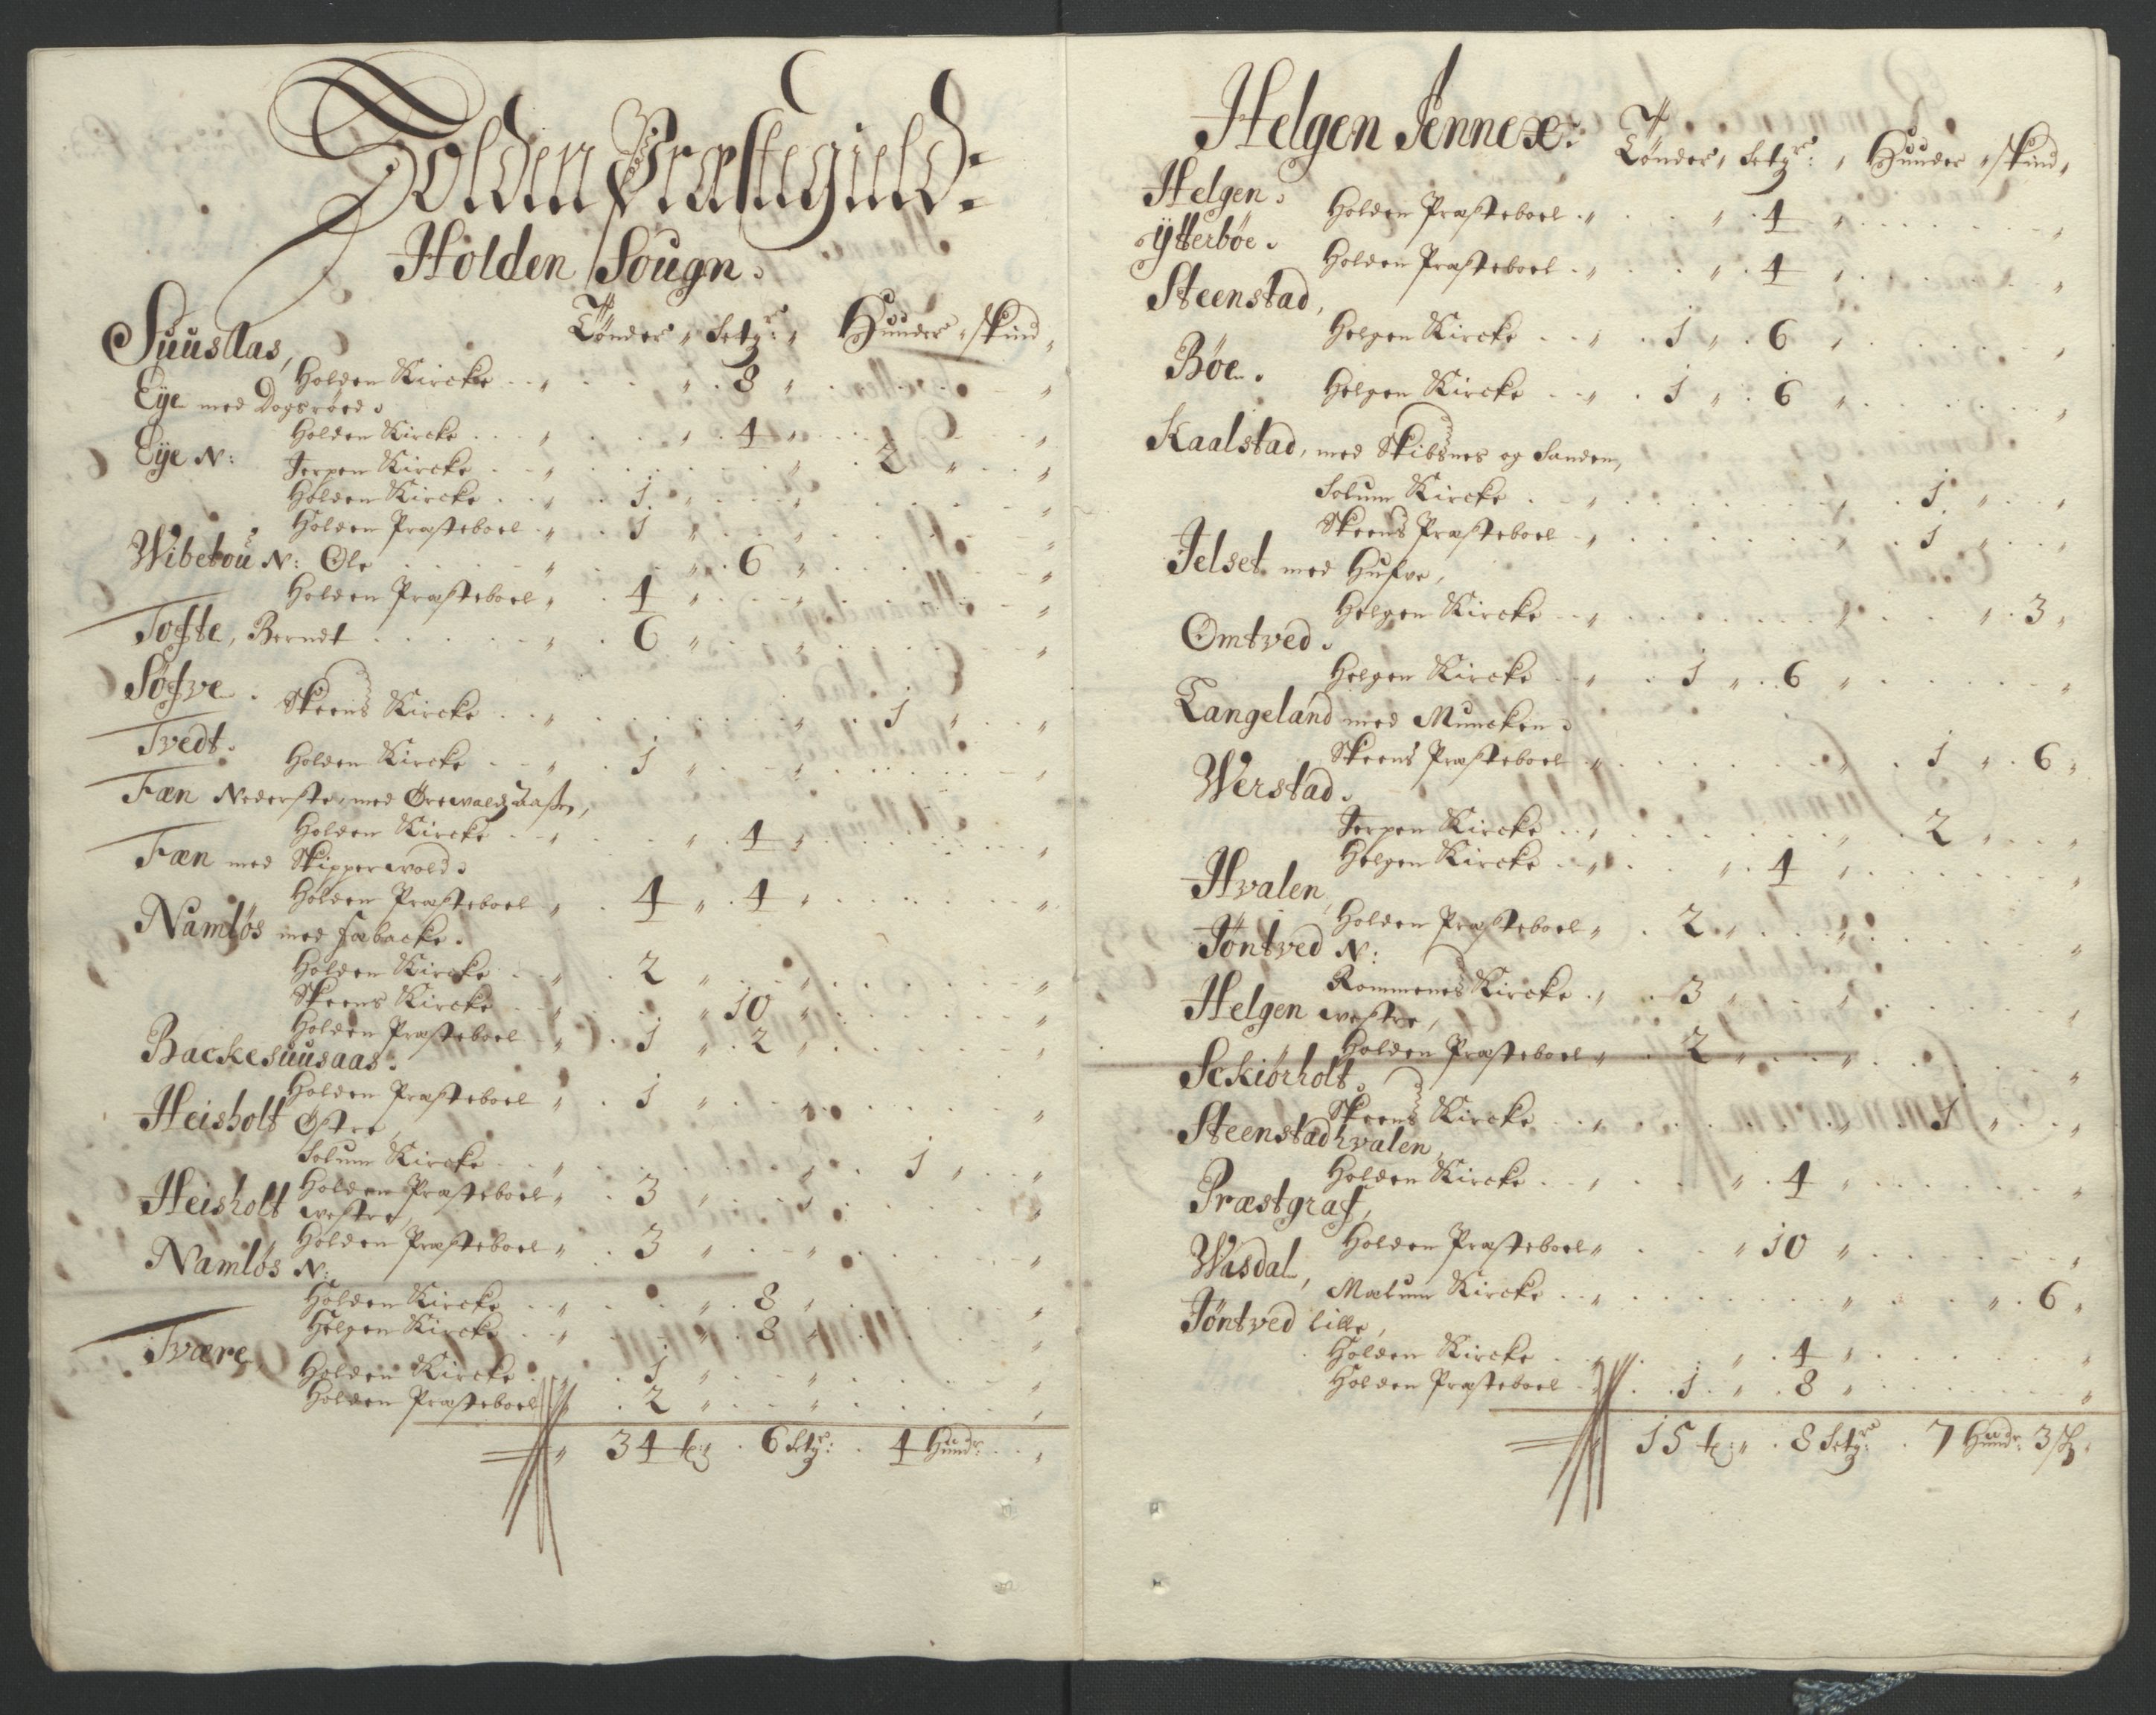 Holden Præstegield:
Holden Sougn.
Tønder „ Setgr: „ Hunder „ skind „
Suuslas,
Holden Kircke „ „ 8 „ „
Eye med Dogsröed.
Holden Kircke „ „ 4 „ „
Eye N: Jerpen Kircke „ „ 2 „ „
Holden Kircke „ 1 „ „ „
Holden Præsteboel „ 1 „ „ „
Wibetou N: Ole „ „ 6 „ „
Holden Præsteboel „ 4 „ „ „
Tofte, Berndt „ 6 „ „ „
Söfve.
Skeens Kircke „ „ 1 „ „
Tvedt.
Holden Kircke „ 1 „ „ „
Fæn Nederste, med
Holden Kircke „ „ 4 „ „
Fæn med Skipperwold.
Holden Præsteboel „ 4 „ 4 „ „
Namlös med Fabacke.
Holden Kircke „ 2 „ „ „
Skeens Kircke „ „ 10 „ „
Holden Præsteboel „ 1 „ 2 „ „
Backesuusaas.
Holden Præsteboel „ 1 „ „ „
Heisholt Östre,
Solum Kircke „ „ 1 „ „
Holden Præsteboel „ 3 „ „ „
Heisholt westre,
Holden Præsteboel „ 3 „ „ „
Namlös N:
Holden Kircke „ „ 8 „ „
Helgen Kircke „ „ 8 „ „
Tvære,
Holden Kircke „ 1 „ „ „
Holden Præsteboel „ 2 „ „ „
„ 34 t: „ 6 Setgr: 4 Hundr: „
Helgen Annex:
Tønder „ Setgr: „ Hunder „ skind „
Helgen.
Holden Præsteboel „ „ 4 „ „
Ytterböe.
Holden Præsteboel „ „ 4 „ „
Steenstad,
Helgen Kircke „ 1 „ 6 „ „
Böe.
Helgen Kircke „ 1 „ 6 „ „
Kaalstad, med Skibsnes og Sanden,
Solum Kircke „ „ 1 „ „
Skeens Præsteboel „ „ 1 „ „
Jelset med Hufve,
Helgen Kircke „ „ „ 3 „
Omtved.
Helgen Kircke „ 1 „ 6 „ „
Langeland med Muncken.
Skeens Præsteboel „ „ 1 „ 6 „
Werstad.
Jerpen Kircke „ „ 2 „ „
Helgen Kircke „ „ 4 „ „
Hvalen,
Holden Præsteboel „ 2 „ „ „
Töntved N:
Rommenes Kircke „ 3 „ „ „
Helgen westre,
Holden Præsteboel „ 2 „ „ „
Sckiörholt.
Skeens Kircke „ „ 1 „ „
Steenstadhvalen,
Holden Kircke „ „ 4 „ „
Præstgraf,
Holden Præsteboel „ „ 10 „ „
Wasdal,
Mælum Kircke „ „ „ 6 „
Töntved lille,
Holden Kircke „ „ 4 „ „
Holden Præsteboel „ 1 „ 8 „ „
15 t: „ 8 Setgr: 7 Hundr: 3 sk: